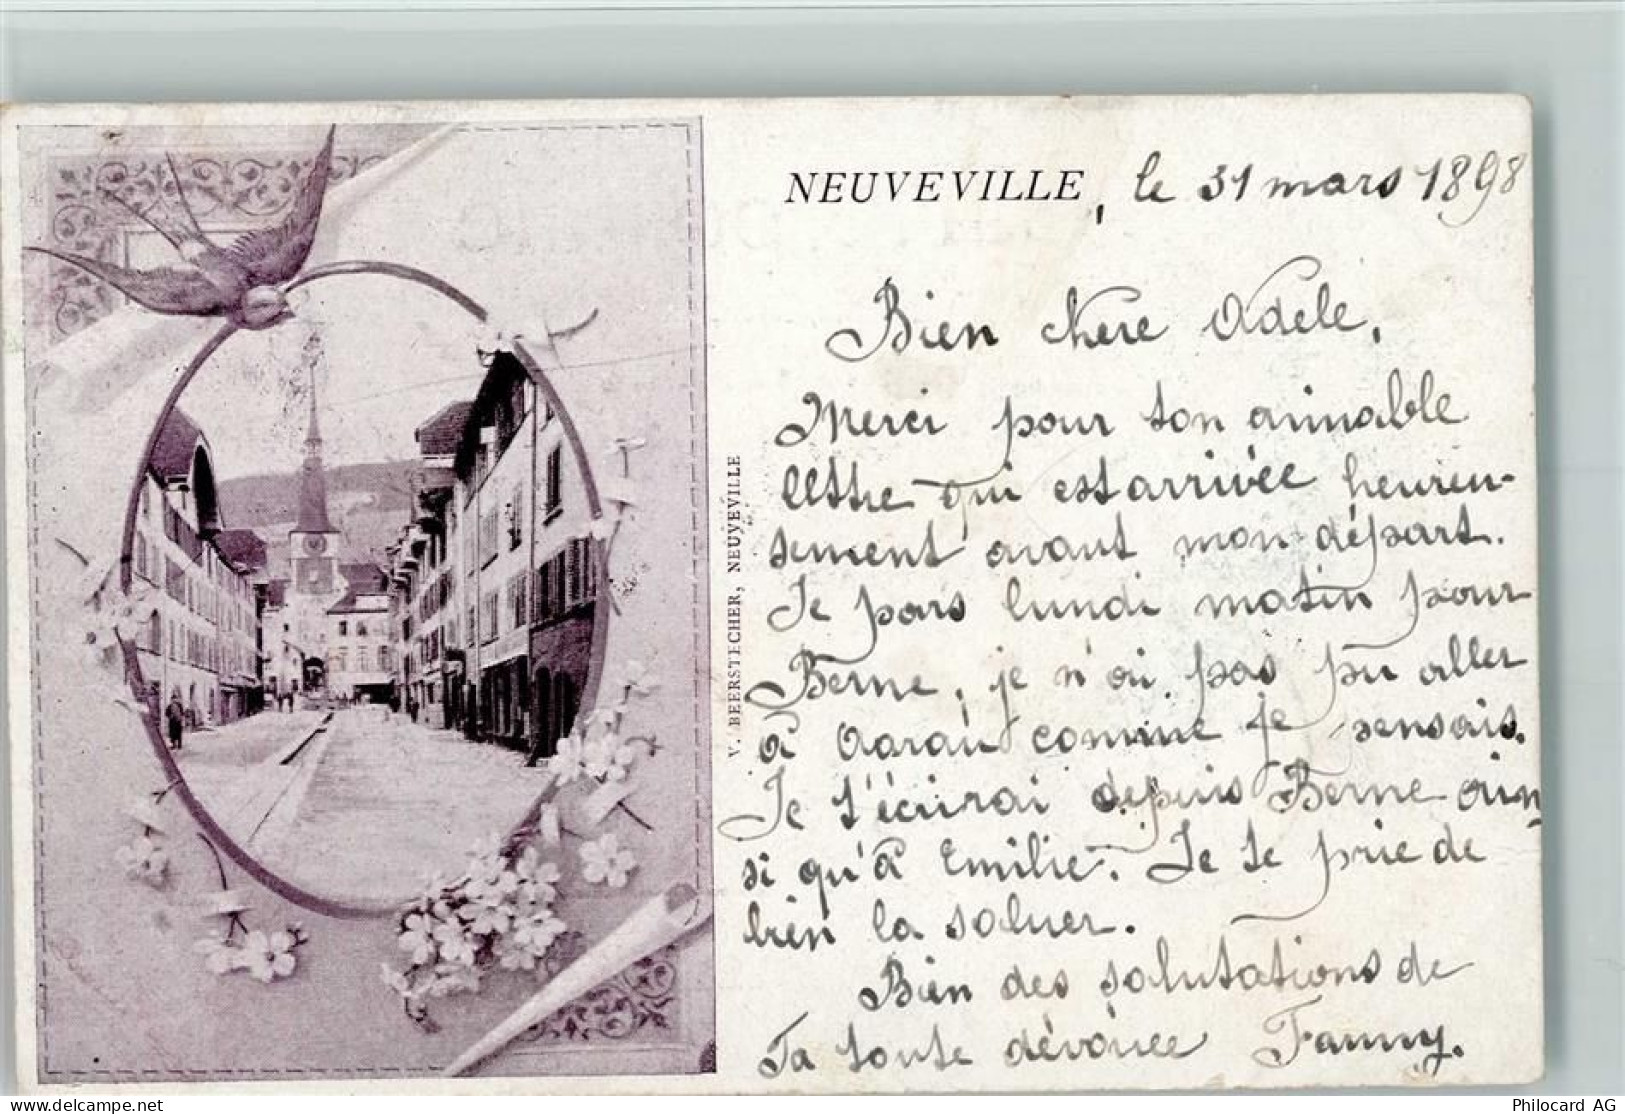 NEUVEVILLE, le 31 mars 1898
Bien chère Adèle,
Merci pour ton aimable
lettre qui est arrivée heureu-
sement avant mon départ.
Je pars lundi matin pour
Berne, je n'ai pas pu aller
à Aarau comme je pensais.
Je t'écrirai depuis Berne ain-
si qu'à Emilie. Je te prie de
bien la saluer.
Bien des salutations de
Ta toute dévouée Fanny.
V. BEERSTECHER, NEUVEVILLE
Philocard AG